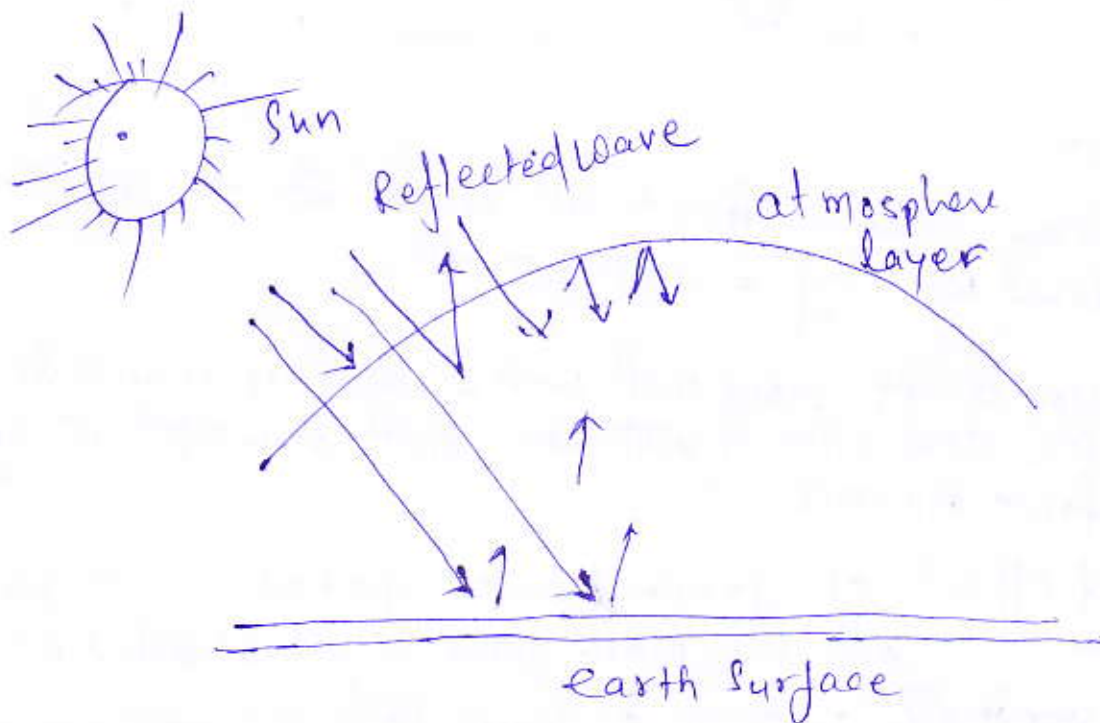 Sun
Reflected wave
atmosphere
layer
earth surface